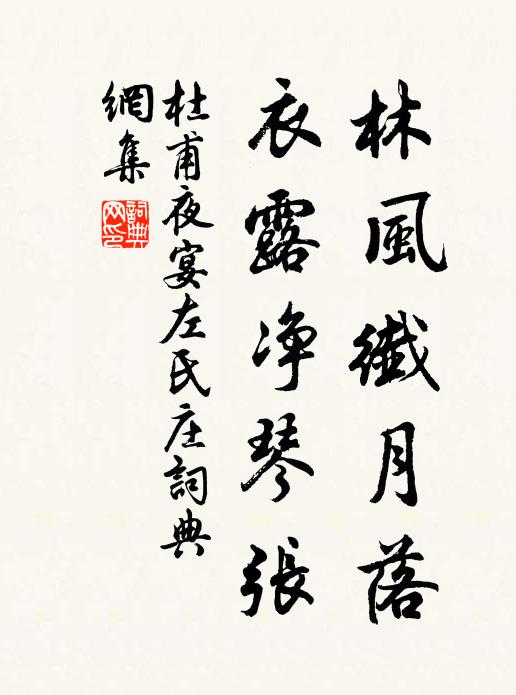 林風纖月落
衣露净琴張
杜甫夜宴左氏庄詞典
網集
詞典
网印